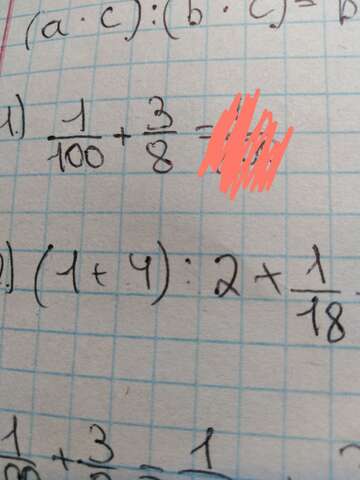 (a · c) : (b · c) =
1.) 1/100 + 3/8 =
) (1 + 4) : 2 + 1/18
1 + 3 = 1